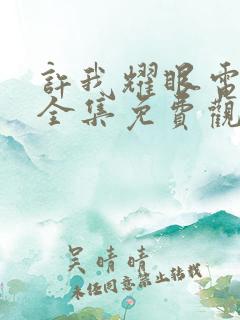 許我耀眼電
全集免費觀
吴晴晴
未经同意禁止转载